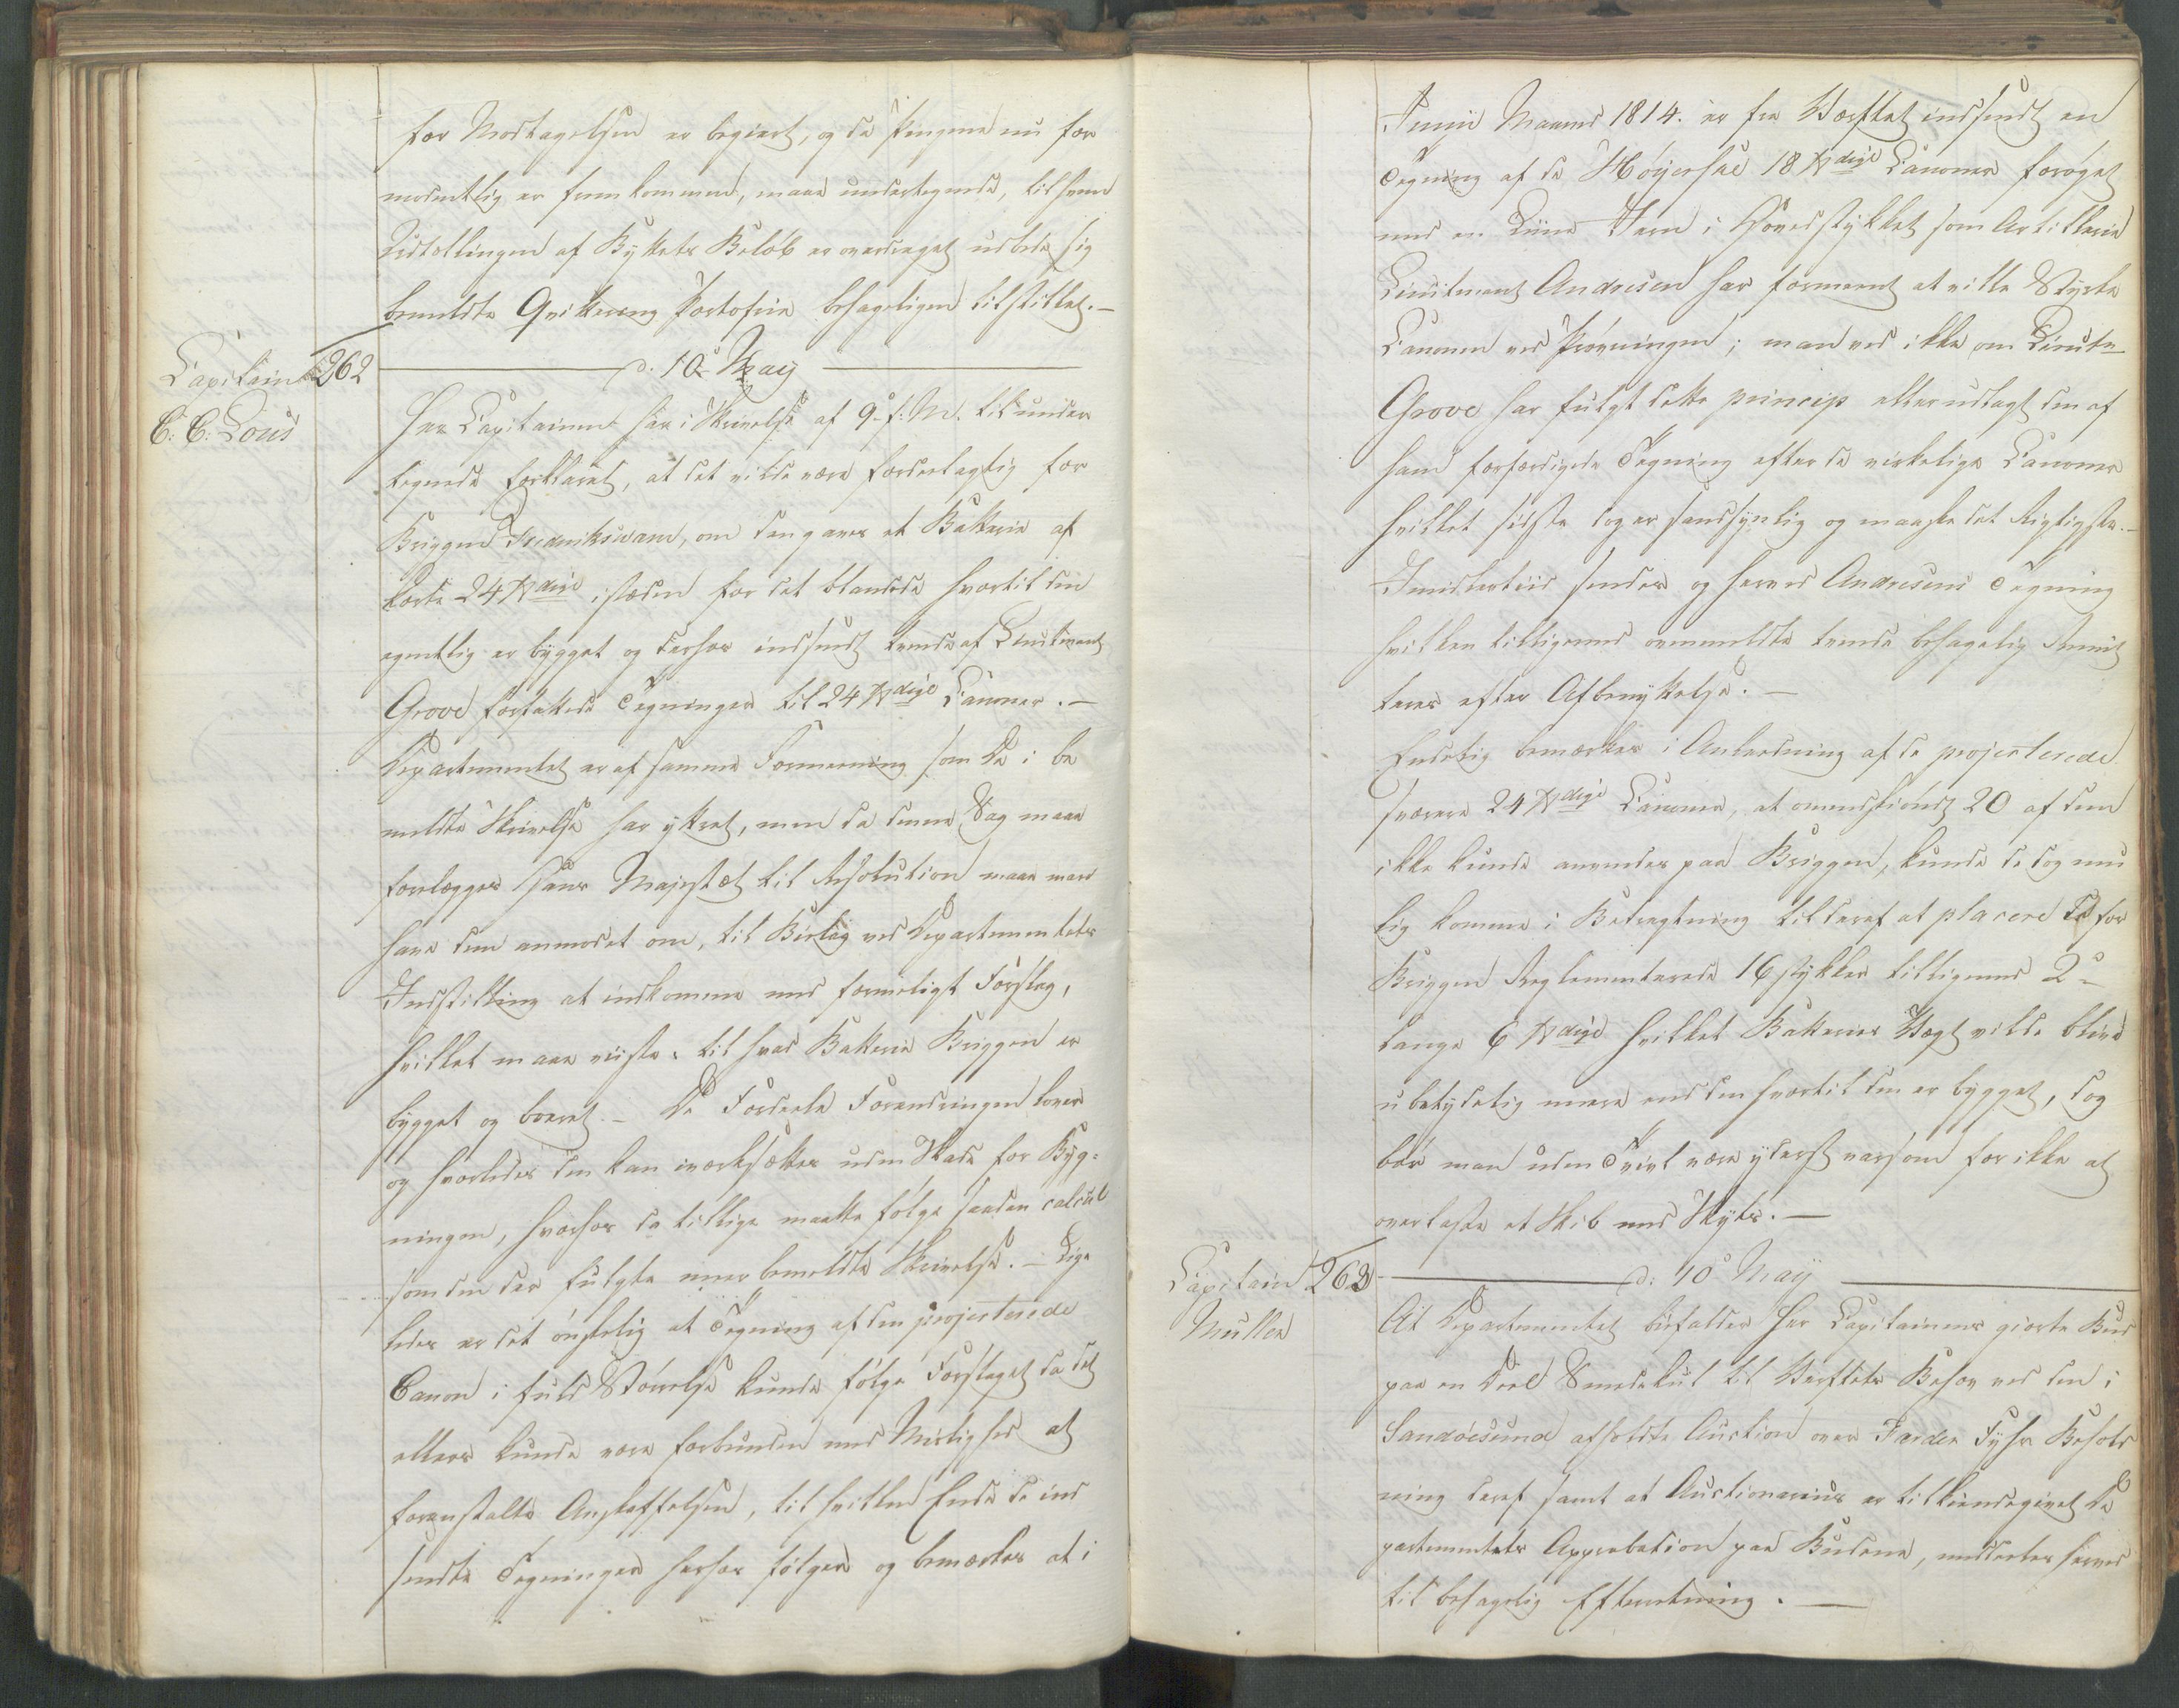 for Modtagelsen er begiert, og da Pengene nu for
modentlig er fremkommen, maae undertegnede, til hvem
Udtallingen af Byttets Beløb er overdraget udbede sig
bemeldte Qvittering Portofrie behageligen tilstillet. —
Capitain
C: C: Lous
262
d. 10 May
Herr Capitainen har i Skrivelse af 9 f: M. til under
tegnede forklaret, at det vilde være fordeelagtig for
Briggen Fredriksværn, om den gaves et Batterie af
korte 24 ℔dige isteden for det blandede hvortil den
egentlig er bygget og derhos indsendt tvende af Lieutenant
Grove forfattede Tegninger til 24 ℔dige Canoner. —
Departementet er af samme Formening som De i be
meldte Skrivelse har yttret, men da denne Sag maae
forelægges Hans Majestæt til Resolution maae man
have Dem anmodet om, til Bielag ved Departementets
Indstilling at indkomme med formeligt Forslag,
hvilket maae udviise: til hvad Batterie Briggen er
bygget og boeret. — De Fordeele Forandringen lover
og hvorledes den kan iværksættes uden Skade for Byg=
ningen, hvorhos da tillige maatte følge saadan calcul
som den der fulgte meerbemeldte Skrivelse. — Lige
ledes er det ønskelig at Tegning af den projecterede
Canon i fuld Størrelse kunde følge Forslaget da det
ellers kunde være forbunden med Mislighed at
foranstalte Anskaffelsen, til hvilken Ende de ind
sendte Tegninger herhos følger og bemærkes at i
Junii Maaned 1814. er fra Værftet indsendt en
Tegning af de Høyerske 18 ℔dige Canoner forøget
med en Liine Jern i Hovedstykket som Artillerie
Lieutenant Andresen har formeent at ville Styrke
Canonen ved Prøvningen; man ved ikke om Lieutn
Grove har fulgt dette princip eller udtagt den af
ham forfærdigede Tegning efter de virkelige Canoner
hvilket sidste dog er sandsynlig og maaske det Rigtigste. —
Imidlertiid sendes og herved Andresens Tegning
hvilken tilligemed ovenmeldte tvende behagelig Remit
teres efter Afbenyttelse. —
Endelig bemærkes i Anledning af de projecterede
sværere 24 ℔dige Canoner, at omendskiøndt 20 af dem
ikke kunde anvendes paa Briggen, kunde de dog nem
lig komme i Betragtning til deraf at placere de for
Briggen Reglementerede 16 Stykker tilligemed 2
lange 6 ℔dige hvilket Batteries Vægt vilde blive
ubetydelig mere end den hvortil den er bygget, dog
bør man uden Tvivl være yderst varsom for ikke at
overlaste et Skib med Skyts. —
Capitain
Müller
263
d: 10 May
At Departementet bifalder Herr Capitainens giorte Bud
paa en Deel Smedekul til Værftets Behov ved den i
Sandøesund afholdte Auction over Færder Fyhrs Behold
ning deraf samt at Auctionarius er tilkiendegivet De
partementets Approbation paa Budene, meddeeles herved
til behagelig Efterretning. —